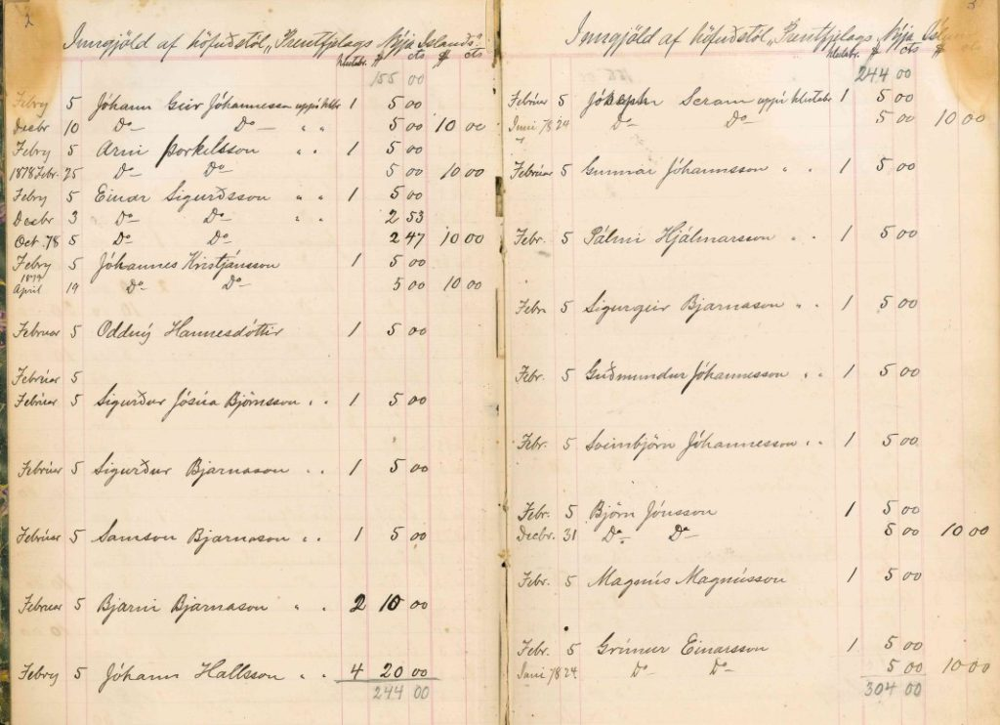 2
Inngjöld af höfuðstól „Prentfjelags Nýja Íslands"
hlutabr. $ cts $ cts
155 00
Febry 5 Jóhann Geir Jóhannesson uppí hlbr 1 5 00
Desbr 10 Do Do " " 5 00 10 00
Febry 5 Arni Þorkelsson " " 1 5 00
1878 Febr. 25 Do Do 5 00 10 00
Febry 5 Einar Sigurðsson " " 1 5 00
Desbr 3 Do Do " " 2 53
Oct. 78 5 Do Do 2 47 10 00
Febry 5 Jóhannes Kristjánsson 1 5 00
1879
April 19 Do Do 5 00 10 00
Februar 5 Oddný Hannesdóttir 1 5 00
Februar 5
Februar 5 Sigurður Jósúa Björnsson " " 1 5 00
Februar 5 Sigurður Bjarnason " " 1 5 00
Februar 5 Samson Bjarnason " " 1 5 00
Februar 5 Bjarni Bjarnason " " 2 10 00
Febry 5 Jóhann Hallsson " " 4 20 00
244 00
3
Inngjöld af höfuðstól „Prentfjelags Nýja
hlutabr. $ cts $
244 00
Februar 5 Jóseph Scram uppí hlutabr 1 5 00
Juni 78 24 Do Do 5 00 10 00
Februar 5 Gunnar Jóhannsson " " 1 5 00
Febr. 5 Pálmi Hjálmarsson " " 1 5 00
Febr. 5 Sigurgeir Bjarnason " " 1 5 00
Febr. 5 Guðmundur Jóhannesson " " 1 5 00
Febr. 5 Sveinbjörn Jóhannesson " " 1 5 00
Febr. 5 Björn Jónsson 1 5 00
Decbr. 31 Do Do 5 00 10 00
Febr. 5 Magnús Magnússon 1 5 00
Febr. 5 Grímur Einarsson 1 5 00
Juni 78 24 Do Do 5 00 10 00
304 00